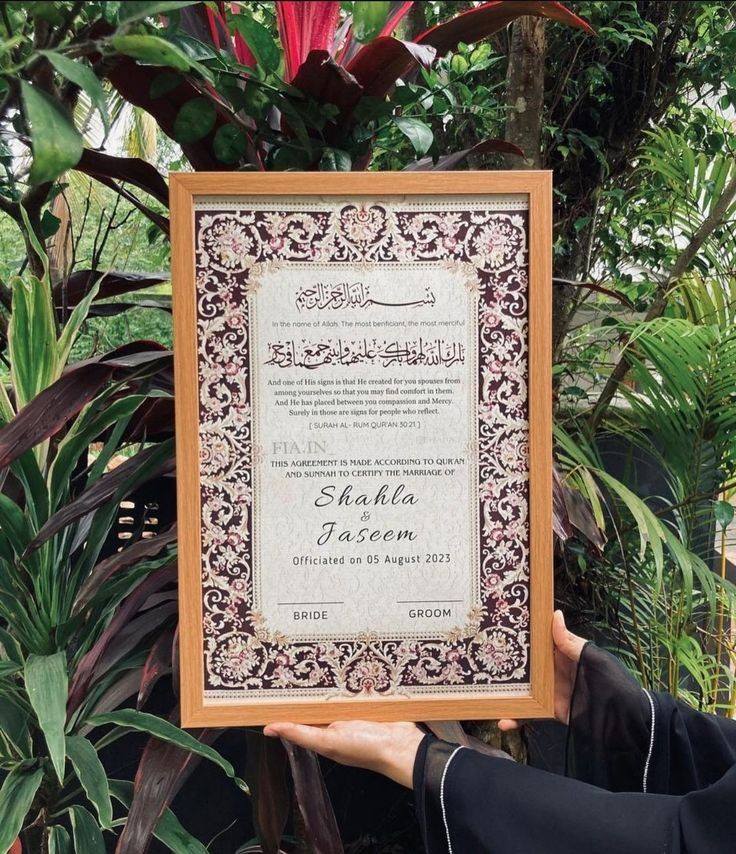 بسم الله الرحمن الرحيم
In the name of Allah, The most benficiant, the most merciful
بارك الله لهما وبارك عليهما وجمع بينهما في خير
And one of His signs is that He created for you spouses from
among yourselves so that you may find comfort in them.
And He has placed between you compassion and Mercy.
Surely in those are signs for people who reflect.
[ SURAH AL- RUM QUR'AN 30:21 ]
FIA.IN
THIS AGREEMENT IS MADE ACCORDING TO QUR'AN
AND SUNNAH TO CERTIFY THE MARRIAGE OF
Shahla
&
Jaseem
Officiated on 05 August 2023
BRIDE GROOM